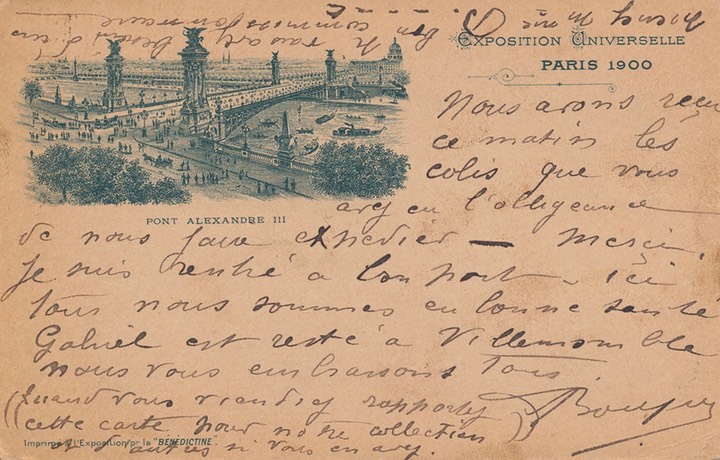 EXPOSITION UNIVERSELLE
PARIS 1900
PONT ALEXANDRE III
Nous avons reçu
ce matin les
colis que vous
avez eu l'obligeance
de nous faire expédier — Merci.
Je suis rentré à bon port – ici
tous nous sommes en bonne santé
Gabriel est resté à Villemomble
nous vous embrassons tous.
(Quand vous viendrez rapportez
cette carte pour notre collection
et d'autres si vous en avez.
Imprimé à l'Exposition pr la "BÉNÉDICTINE"